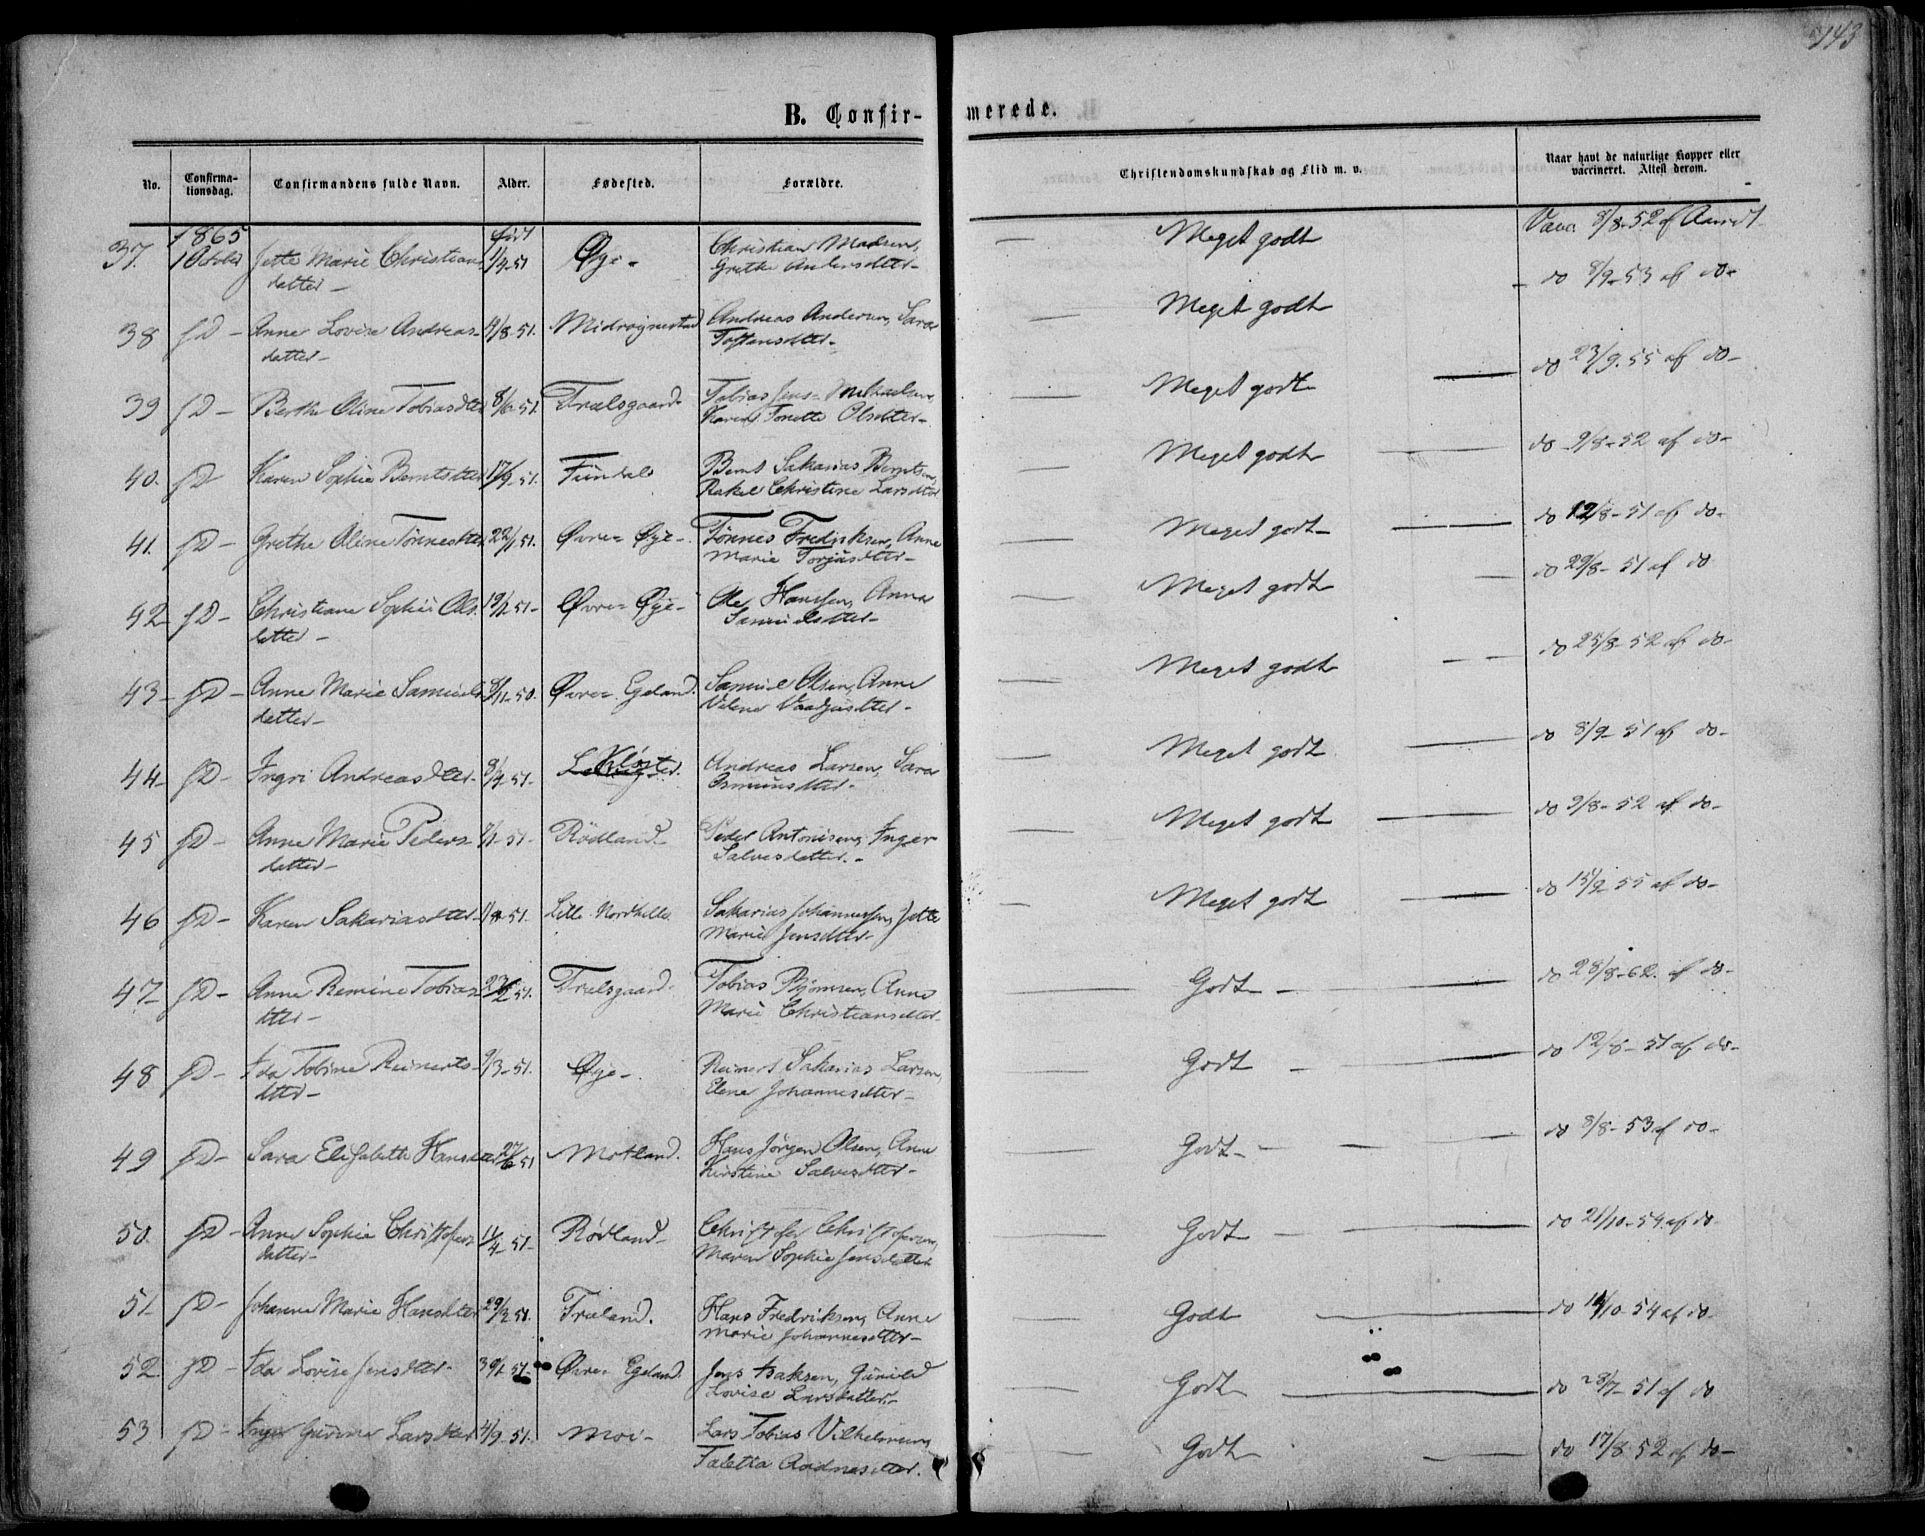 143
B. Confirmerede.
No. Confirmationsdag. Confirmandens fulde Navn. Alder. Fødested. Forældre. Christendomskundskab og Flid m. v. Naar havt de naturlige Kopper eller vaccineret. Attest derom.
1865 født
37. 1 October Jette Marie Christians 1/9-51 Øye- Christian Madsen, Meget godt Vacc. 8/8-52 af Aamodt
detter- Grethe Andersdtter-
38 fD- Anne Lovise Andreas- 4/8-51. Midrøgnestad Andreas Andersen, Sara Meget godt do 8/9-53 af do-
detter- Tostensdtter-
39 fD- Berthe Oline Tobiasdtter 8/6-51. Trælsgaard- Tobias Jens- Mikaelsen, Meget godt do 23/9-55 af do-
Karen Tonette Olsdtter-
40. fD Karen Sophie Berntsdtter 17/9-51. Fundal Bernt Sakarias Berntsen, Meget godt do 9/8-52 af do-
Rakel Christine Larsdtter
41. fD- Grethe Oline Tønnesdtter 22/1-51. Øvre- Øye- Tønnes Fredriksen, Anne Meget godt do 12/8-51 af do-
Marie Torjusdtter-
42 fD- Christiane Sophie Ols- 19/2-51- Øvre- Øye- Ole Hansen, Anna Meget godt do 29/8-51 af do
detter- Samuelsdtter-
43- fD- Anne Marie Samuels /11-50. Øvre- Egeland. Samuel Olsen, Anne Meget godt do 25/8-52 af do-
detter-
44- fD- Ingri Andreasdtter- 9/4-51- Kloster Andreas Larsen, Sara Meget godt do 8/9-51 af do-
Osmunsdtter-
45 fD- Anne Marie Peders- /1-51- Rødland- Peder Antonisen, Inger Meget godt do 9/8-52 af do-
detter- Salvesdatter.-
46 fD- Karen Sakariasdtter- /8-51. Lille Nordhelle Sakarias Johannessen, Jette Meget godt do 15/9-55 af do-
Marie Jensdtter-
47- fD- Anne Remine Tobias- 23/2-51. Trælsgaard- Tobias Bjørnsen, Anne Godt- do 28/8-62. af do-
dtter- Marie Christiansdtter-
48 fD- Ida Tobine Reinerts- 9/3-51. Øye- Reinert Sakarias Larsen, Godt do 12/8-51 af do-
dtter- Elene Johannesdtter-
49 fD- Sara Elisabeth Hansdtter 27/6-51 Motland. Hans Jørgen Olsen, Anne Godt- do 8/8-53 af do-
Kirstine Salvesdtter-
50. fD- Anne Sophie Christofers- 11/4-51- Rødland- Christofer Christofersen, Godt do 21/10-54 af do
detter- Maren Sophie Jensdatter
51 fD- Johanne Marie Hansdtter 29/3-51. Træland. Hans Fredriksen, Anne Godt do 14/10-54 af do-
Marie Johannesdtter-
52. fD- Ida Lovise Jensdtter- 30/1-51- Øvre- Egeland Jens Isaksen, Gunild Godt do 28/7-51 af do
Lovise Larsdatter-
53 fD- Inger Gurine Larsdtter 4/9-51. Moi- Lars Tobias Vilhelmsen, Godt- do 17/8-52 af do-
Taletta Aadnesdtter.